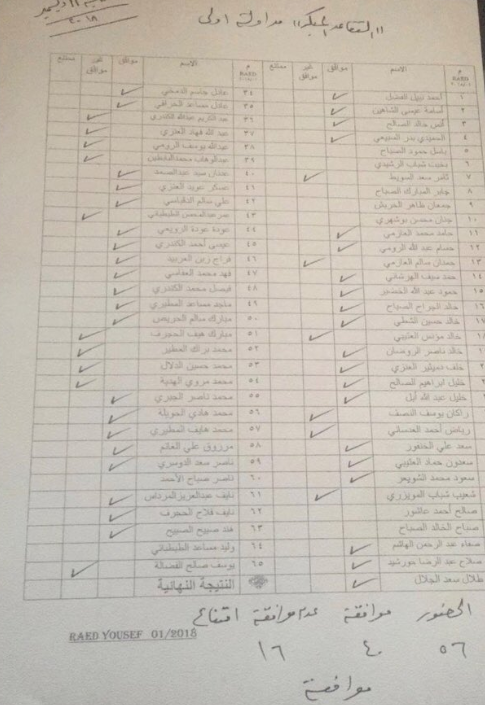 "التقاعد المبكر" مداولة أولى
م
الاسم
موافق
غير موافق
ممتنع
١ أحمد نبيل الفضل
٢ أسامة عيسى الشاهين
٣ أنس خالد الصالح
٤ الحميدي بدر السبيعي
٥ باسل حمود الصباح
٦ بخيت شباب الرشيدي
٧ ثامر سعد السويط
٨ جابر المبارك الصباح
٩ جمعان ظاهر الحربش
١٠ جنان محسن بوشهري
١١ حامد محمد العازمي
١٢ حسام عبد الله الرومي
١٣ حمدان سالم العازمي
١٤ حمد سيف الهرشاني
١٥ حمود عبد الله الخضير
١٦ خالد الجراح الصباح
خالد حسين الشطي
خالد مؤنس العتيبي
خالد ناصر الروضان
خلف دميثير العنزي
خليل ابراهيم الصالح
خليل عبد الله أبل
راكان يوسف النصف
رياض أحمد العدساني
سعد علي الخنفور
سعدون حماد العتيبي
سعود محمد الشويعر
شعيب شباب المويزري
صالح أحمد عاشور
صباح الخالد الصباح
صفاء عبد الرحمن الهاشم
صلاح عبد الرضا خورشيد
طلال سعد الجلال
م RAED
الاسم
موافق
غير موافق
ممتنع
٣٤ عادل جاسم الدمخي
٣٥ عادل مساعد الخرافي
٣٦ عبد الكريم عبدالله الكندري
٣٧ عبد الله فهاد العنزي
٣٨ عبدالله يوسف الرومي
٣٩ عبدالوهاب محمد البابطين
٤٠ عدنان سيد عبدالصمد
٤١ عسكر عويد العنزي
٤٢ علي سالم الدقباسي
٤٣ عمر عبدالمحسن الطبطبائي
٤٤ عودة عودة الرويعي
٤٥ عيسى أحمد الكندري
٤٦ فراج زبن العربيد
٤٧ فهد محمد العفاسي
٤٨ فيصل محمد الكندري
٤٩ ماجد مساعد المطيري
٥٠ مبارك سالم الحريص
٥١ مبارك هيف الحجرف
٥٢ محمد براك المطير
٥٣ محمد حسين الدلال
٥٤ محمد مروي الهدية
٥٥ محمد ناصر الجبري
٥٦ محمد هادي الحويلة
٥٧ محمد هايف المطيري
٥٨ مرزوق علي الغانم
٥٩ ناصر سعد الدوسري
٦٠ ناصر صباح الأحمد
٦١ نايف عبدالعزيز المرداس
٦٢ نايف فلاح الحجرف
٦٣ هند صبيح الصبيح
٦٤ وليد مساعد الطبطبائي
٦٥ يوسف صالح الفضالة
النتيجة النهائية
الحضور موافقة عدم موافقة امتناع
٥٦ ٤٠ ١٦
موافقة
RAED YOUSEF 01/2018